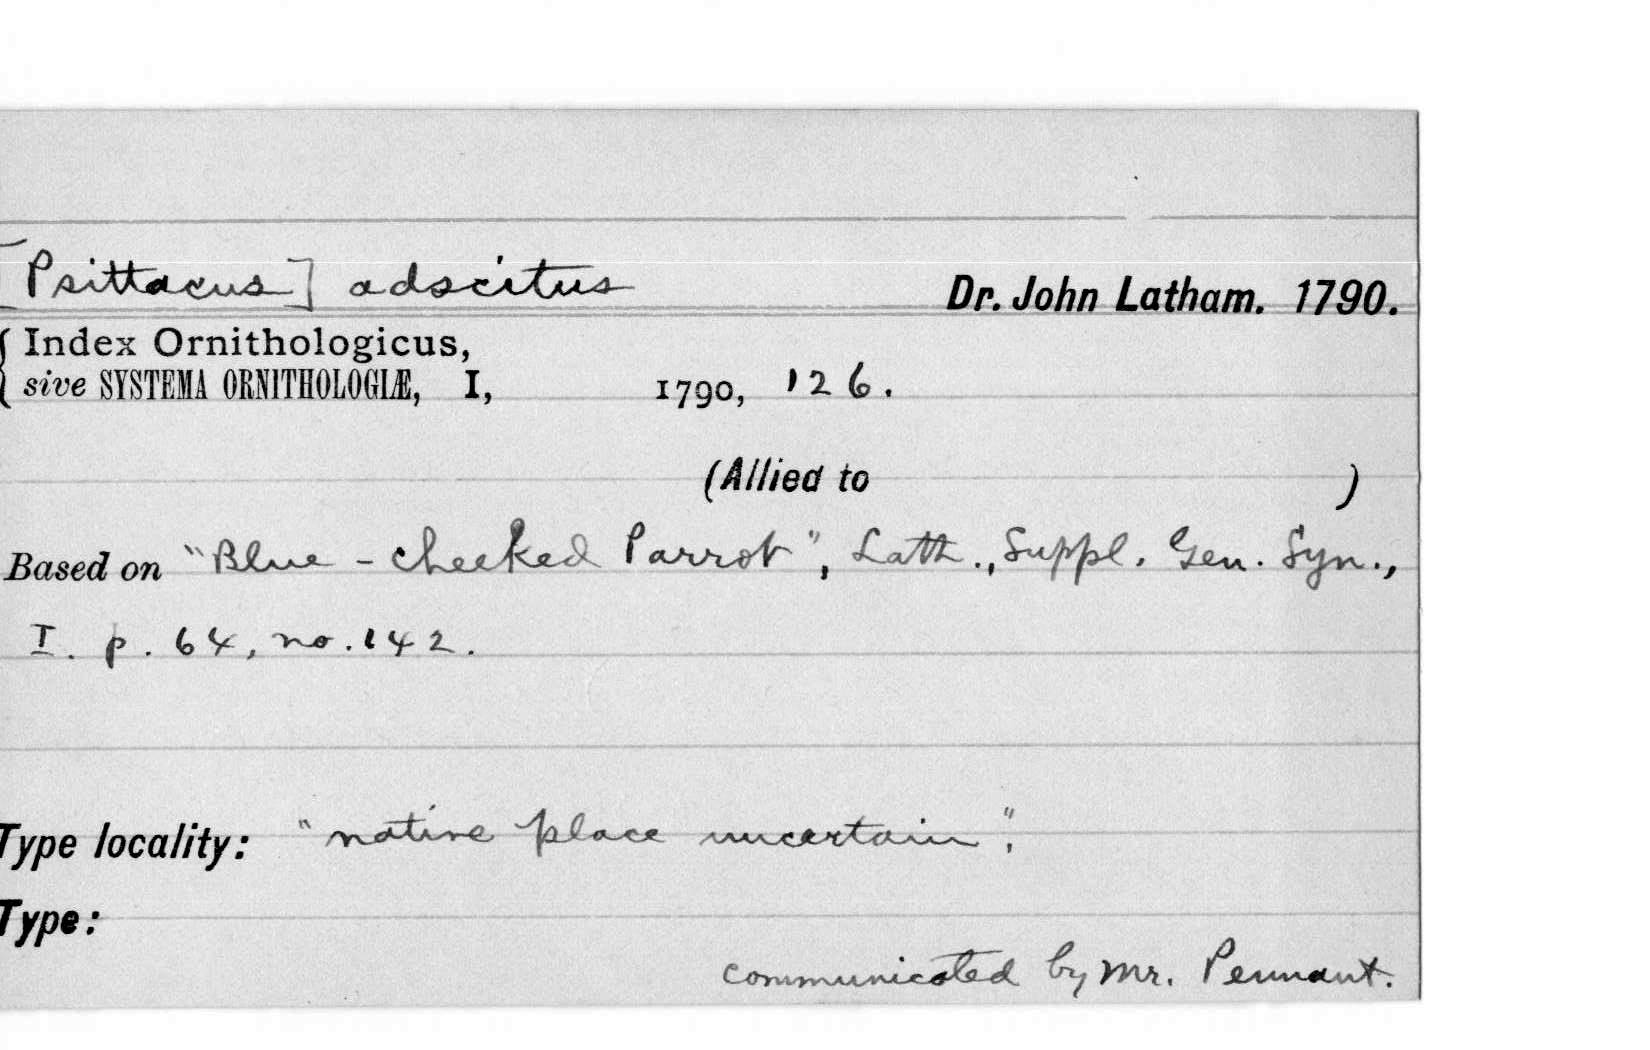 [Psittacus] adscitus Dr. John Latham. 1790.
Index Ornithologicus,
sive SYSTEMA ORNITHOLOGIÆ, I, 1790, 126.
(Allied to )
Based on "Blue-cheeked Parrot", Lath., Suppl. Gen. Syn.,
I. p. 64, no. 142.
Type locality: "native place uncertain".
Type:
communicated by Mr. Pennant.